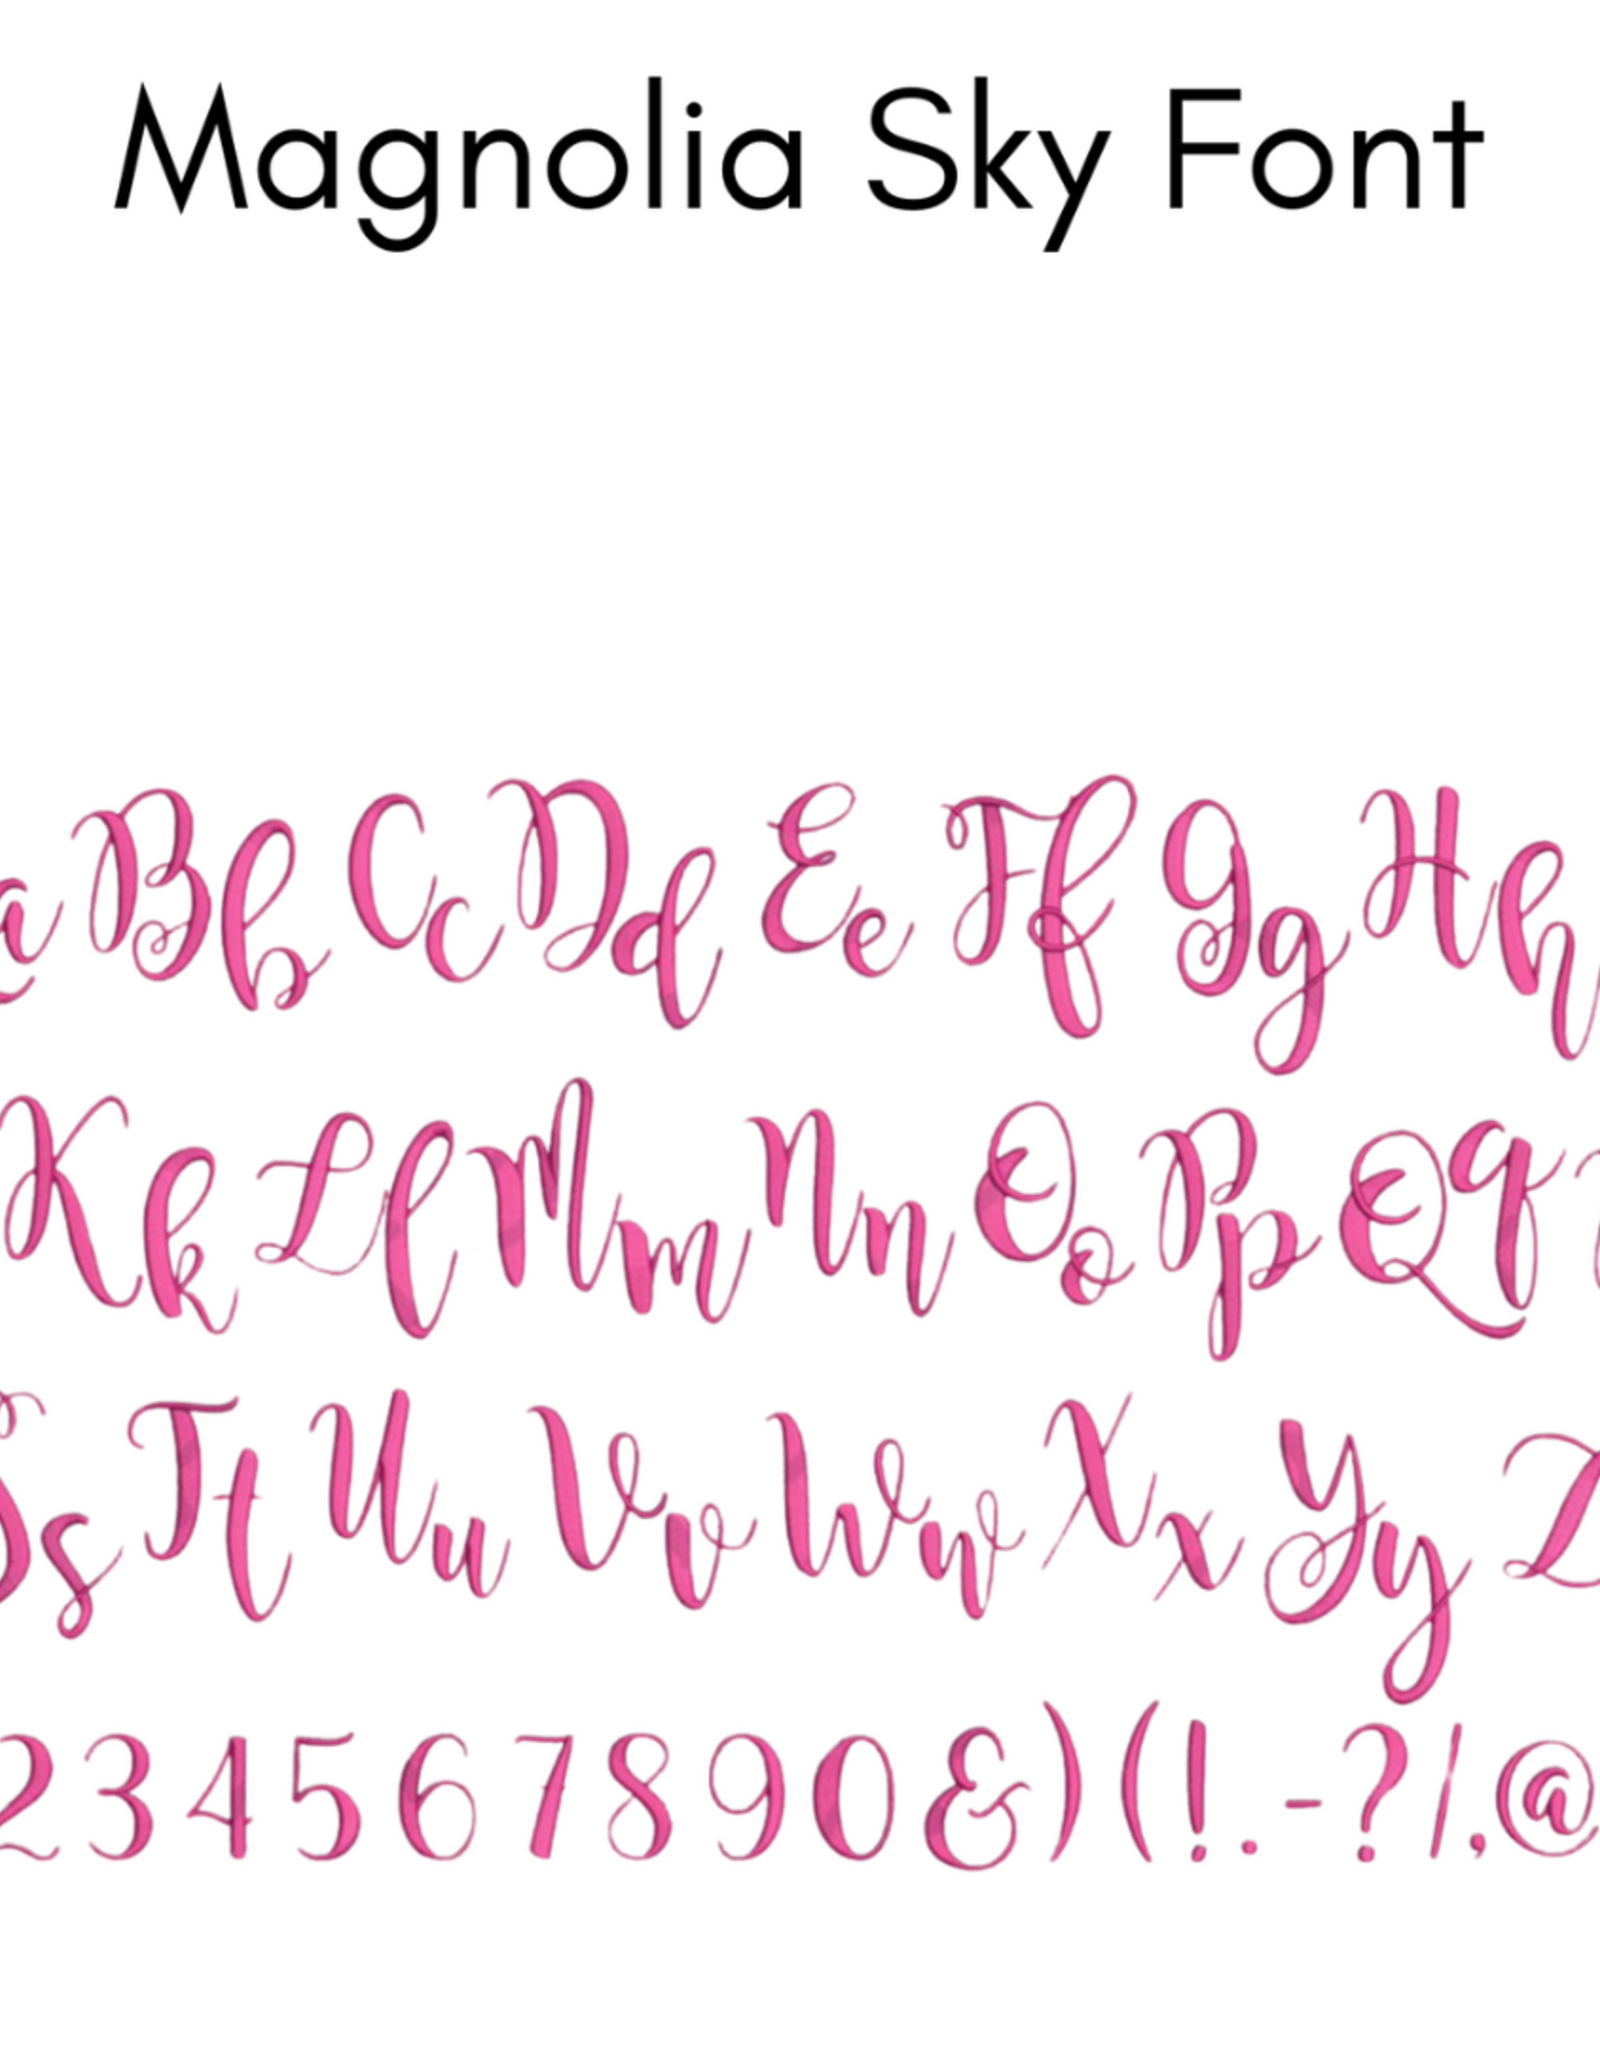 Magnolia Sky Font
a Bb Cc Dd Ee Ff Gg Hh
Kk Ll Mm Nn Oo Pp Qq
Ss Tt Uu Vv Ww Xx Yy Z
2 3 4 5 6 7 8 9 0 & ) ( ! . - ? / , @